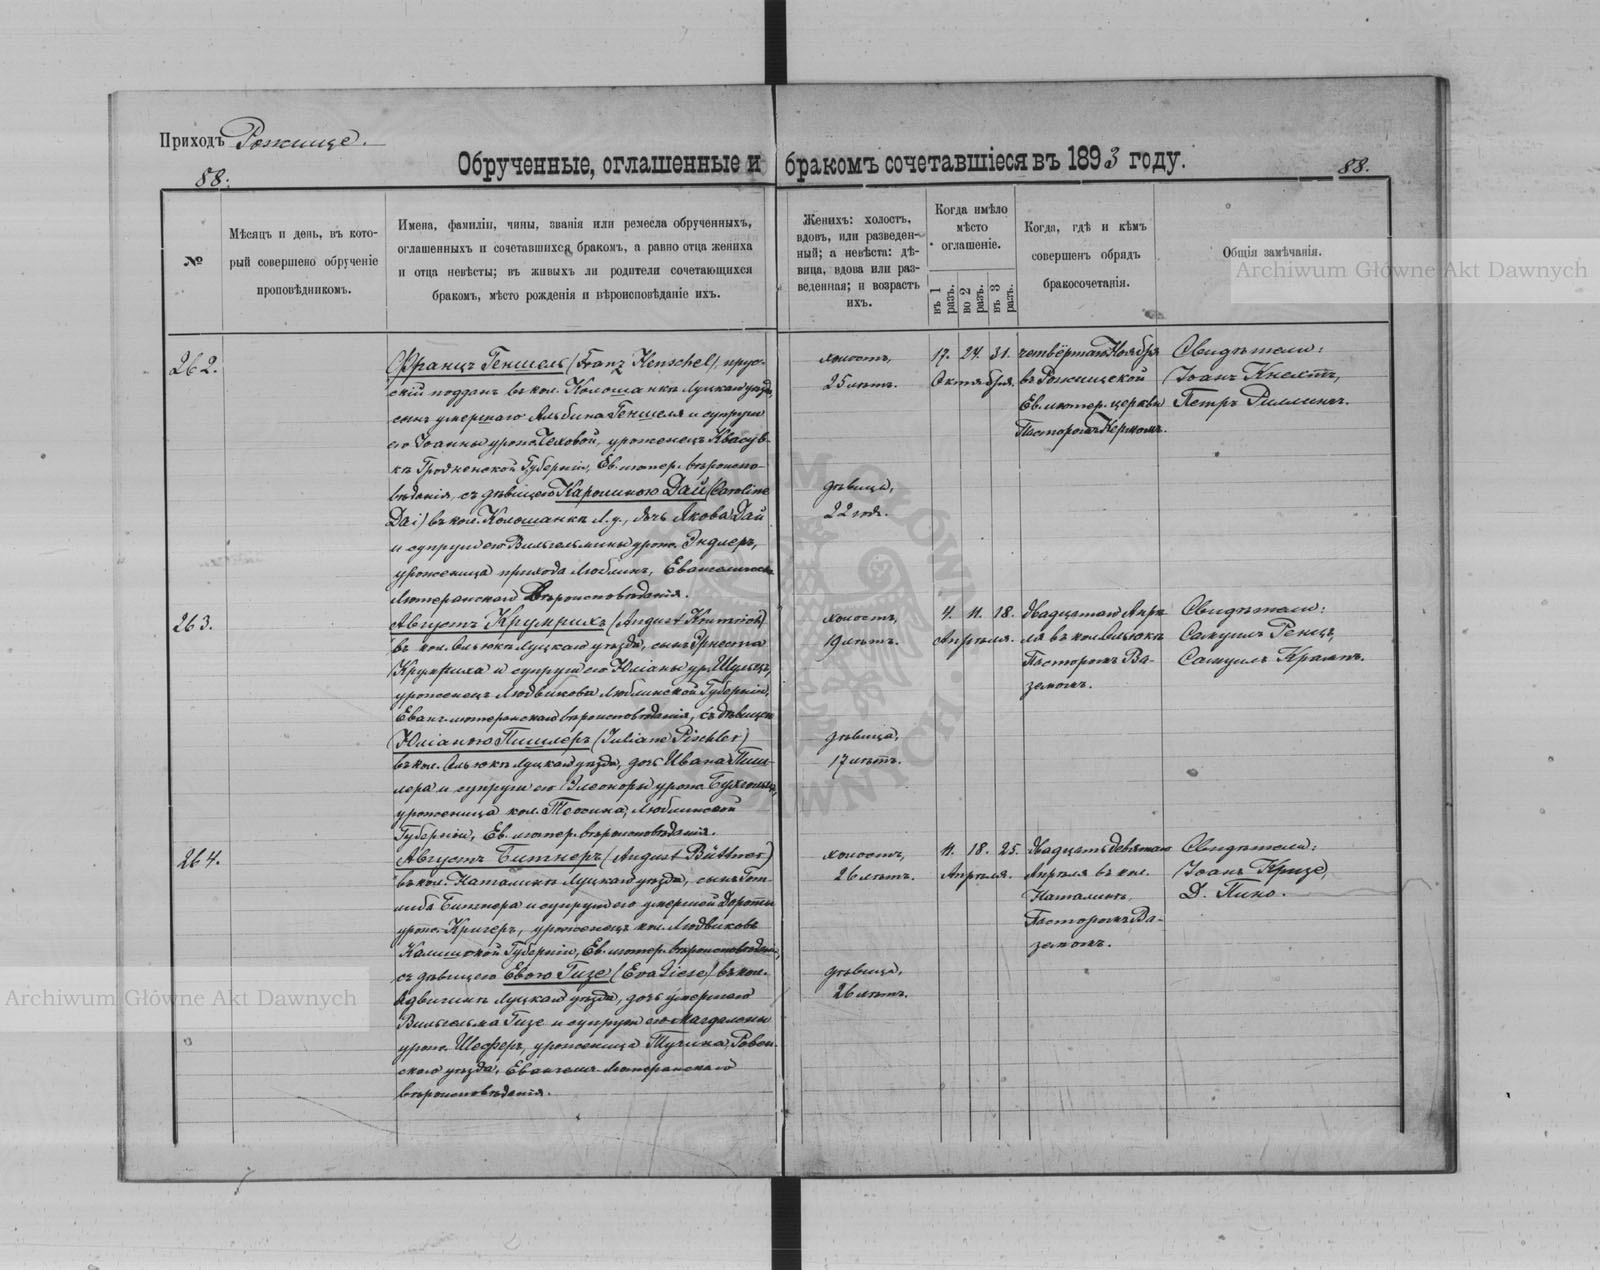 Приходъ Рожище.
Обрученные, оглашенные и бракомъ сочетавшіеся въ 1893 году.
88.
88.
№
Мѣсяцъ и день, въ кото-
рый совершено обрученіе
проповѣдникомъ.
Имена, фамиліи, чины, званія или ремесла обрученныхъ,
оглашенныхъ и сочетавшихся бракомъ, а равно отца жениха
и отца невѣсты; въ живыхъ ли родители сочетающихся
бракомъ, мѣсто рожденія и вѣроисповѣданіе ихъ.
Женихъ: холостъ,
вдовъ, или разведен-
ный; а невѣста: дѣ-
вица, вдова или раз-
веденная; и возрасть
ихъ.
Когда имѣло
мѣсто
оглашеніе.
въ 1 разъ.
во 2 разъ.
въ 3 разъ.
Когда, гдѣ и кѣмъ
совершенъ обрядъ
бракосочетанія.
Общія замѣчанія.
Archiwum Główne Akt Dawnych
262.
Францъ Геншель (Franz Henschel), прус-
скій поддан. въ кол. Колошанкѣ Луцкаго уѣзда,
сынъ умершаго Альбина Геншеля и супруги
его Іоанны урожд. Чеховой, уроженецъ
Гродненской Губерніи, Ев. лютер. вѣроиспо-
вѣданія, съ дѣвицею Каролиною Дай (Caroline
Dai) въ кол. Колошанкѣ Л. у., дочь Якова Дай
и супруги его Вильгельмины урожд. Эндлеръ,
уроженица прихода Люблинъ, Евангелическо
Лютеранскаго Вѣроисповѣданія.
холостъ,
25 лѣтъ.
дѣвица,
22 года.
17. 24. 31.
Октября.
четвёртаго Ноября
въ Рожищской
Ев. лютер. церкви
Пасторомъ Керномъ.
Свидѣтели:
Іоанъ Кнехтъ,
Петръ Риллингъ.
263.
Августъ Крумрихъ (August Krumrich)
въ кол. Ольюкѣ Луцкаго уѣзда, сынъ Эрнеста
Крумриха и супруги его Юліаны ур. Шульцъ,
уроженецъ Людвикова Люблинской Губерніи,
Еванг. лютеранскаго вѣроисповѣданія, съ дѣвицею
Юліаною Пишлеръ (Juliane Pischler)
въ кол. Ольюкѣ Луцкаго уѣзда, дочь Ивана Пиш-
лера и супруги его Элеоноры урожд.
уроженица кол. Теосина, Люблинской
Губерніи, Ев. лютер. вѣроисповѣданія.
холостъ,
19 лѣтъ.
дѣвица,
17 лѣтъ.
4. 11. 18.
Апрѣля.
Двадцатаго Апрѣ-
ля въ кол. Ольюкѣ
Пасторомъ Ва-
земомъ.
Свидѣтели:
Самуилъ Ренцъ,
Самуилъ Крампъ.
264.
Августъ Битнеръ (August Büttner)
въ кол. Наталинѣ Луцкаго уѣзда, сынъ Гот-
либа Битнера и супруги его умершей Доротеи
урожд. Кригеръ, уроженецъ кол. Людвиковъ
Калишской Губерніи, Ев. лютер. вѣроисповѣданія,
съ дѣвицею Евою Гизе (Eva Giese) въ кол.
Ядвигинѣ Луцкаго уѣзда, дочь умершаго
Вильгельма Гизе и супруги его Магдалены
урожд. Шеферъ, уроженица Тучина, Ровен-
скаго уѣзда, Евангели. Лютеранскаго
вѣроисповѣданія.
холостъ,
26 лѣтъ.
дѣвица,
26 лѣтъ.
11. 18. 25.
Апрѣля.
Двадцать девятаго
Апрѣля въ кол.
Наталинѣ
Пасторомъ Ва-
земомъ.
Свидѣтели:
Іоанъ Кризе,
Д. Пико.
Archiwum Główne Akt Dawnych